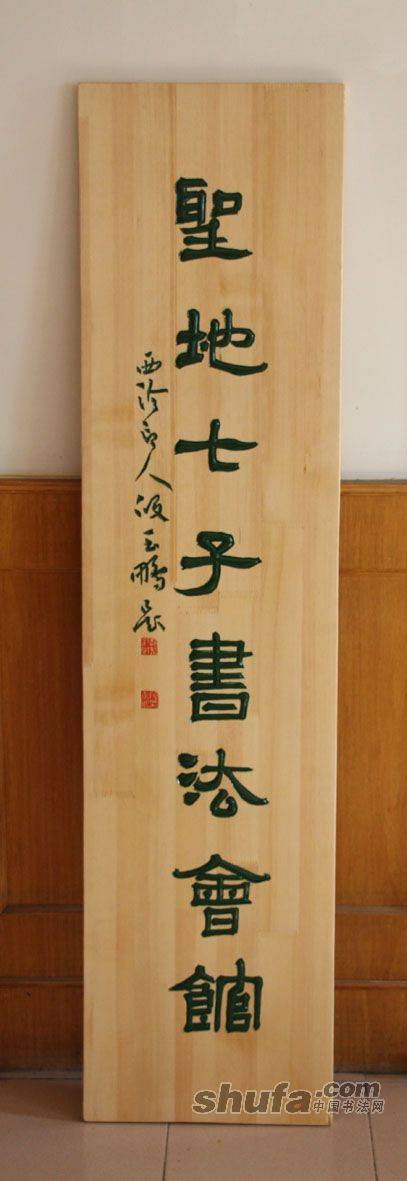 聖地七子書法會館
西泠印人段玉鵬題
shufa.com
中国书法网